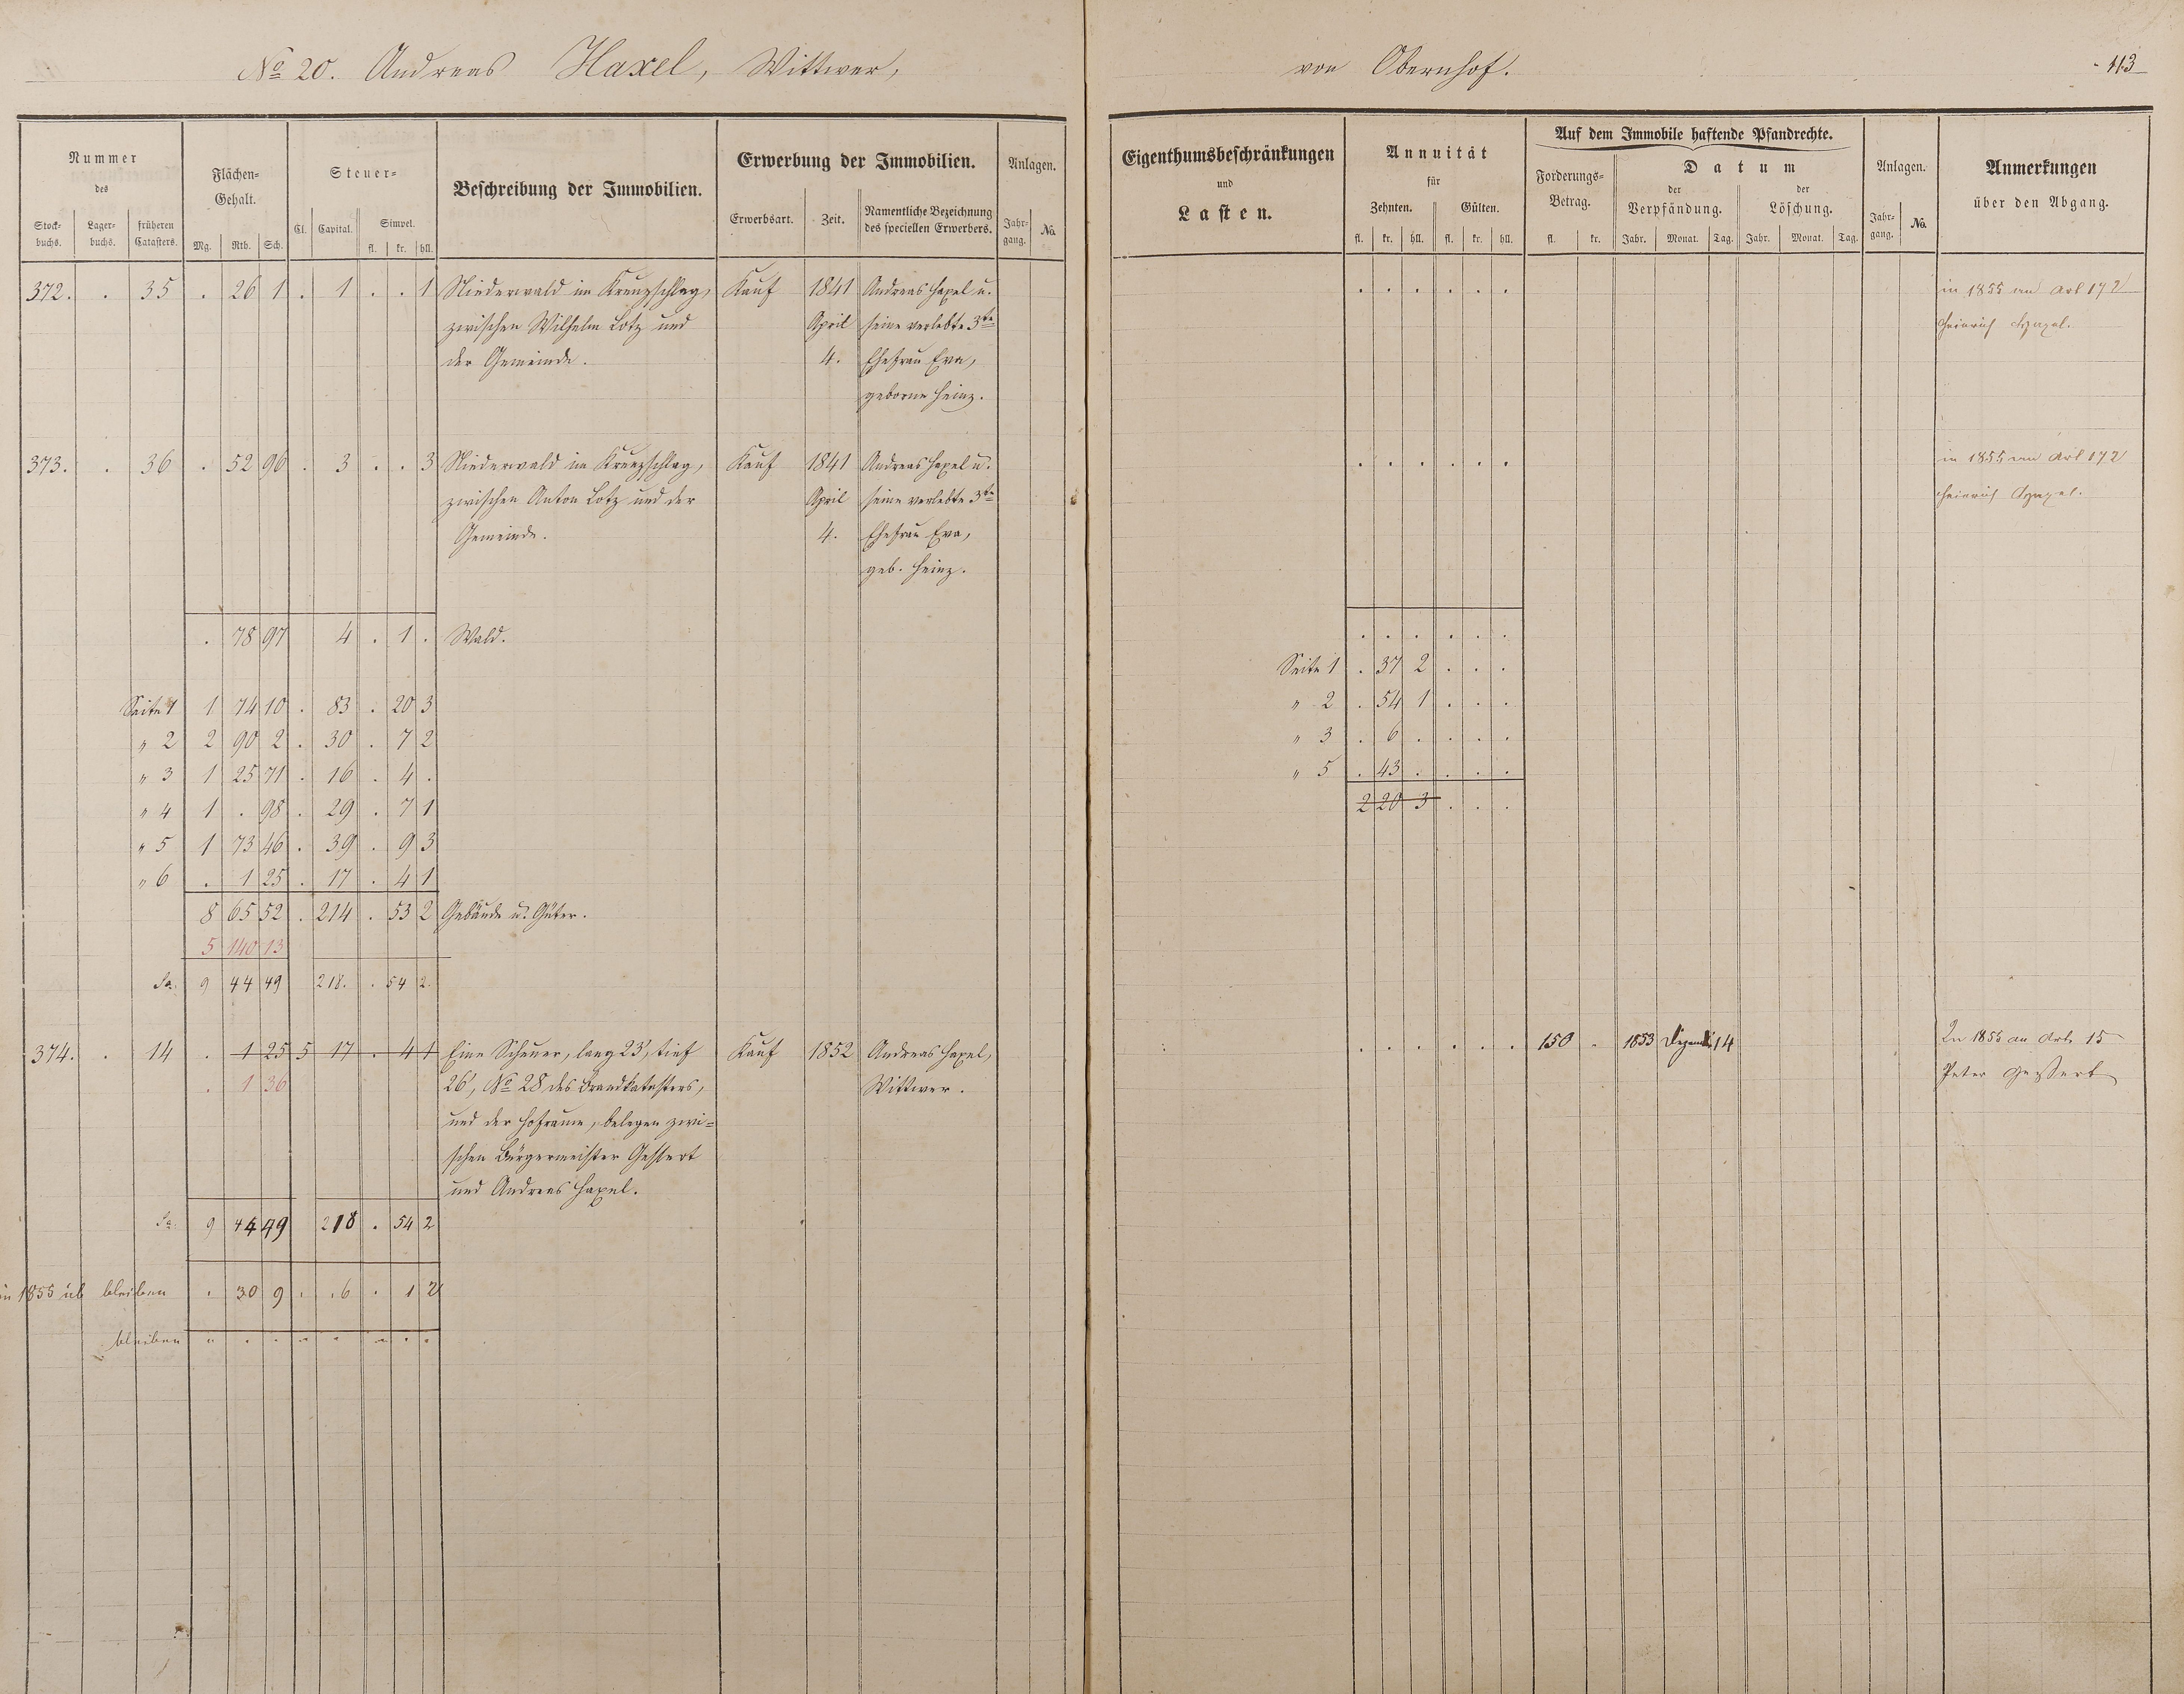 No 20. Andreas Haxel, Wittwer, von Obernhof. 113
Nummer des
Stock-buchs. Lager-buchs. früheren Catasters.
Flächen-Gehalt.
Mg. Rth. Sch.
Steuer-
Cl. Capital. Simpel.
fl. kr. hll.
Beschreibung der Immobilien.
Erwerbung der Immobilien.
Erwerbsart. Zeit. Namentliche Bezeichnung des speciellen Erwerbers.
Anlagen.
Jahr-gang. No.
Eigenthumsbeschränkungen
und
Lasten.
Annuität
für
Zehnten. Gülten.
fl. kr. hll. fl. kr. hll.
Auf dem Immobile haftende Pfandrechte.
Forderungs-Betrag.
fl. kr.
Datum
der Verpfändung. der Löschung.
Jahr. Monat. Tag. Jahr. Monat. Tag.
Anlagen.
Jahr-gang. No.
Anmerkungen
über den Abgang.
372. . 35 . 26 1 . 1 . . 1 Niederwald im Kreuzschlag, Kauf 1841 Andreas Haxel u. . . . . . . in 1855 an Art 172
zwischen Wilhelm Lotz und April seine verlebte 3te Heinrich Haxel.
der Gemeinde. 4. Ehefrau Eva,
geborne Heinz.
373. . 36 . 52 96 . 3 . . 3 Niederwald im Kreuzschlag, Kauf 1841 Andreas Haxel u. . . . . . . in 1855 an Art 172
zwischen Anton Lotz und der April seine verlebte 3te Heinrich Haxel.
Gemeinde. 4. Ehefrau Eva,
geb. Heinz.
. 78 97 4 . 1 . Wald. . . . . . .
Seite 1 . 37 2 . . .
Seite 1 1 74 10 . 83 . 20 3 " 2 . 54 1 . . .
" 2 2 90 2 . 30 . 7 2 " 3 . 6 . . . .
" 3 1 25 71 . 16 . 4 . " 5 . 43 . . . .
" 4 1 . 98 . 29 . 7 1 2 20 3 . . .
" 5 1 73 46 . 39 . 9 3
" 6 . 1 25 . 17 . 4 1
8 65 52 . 214 . 53 2 Gebäude u. Güter.
5 140 13
Sa. 9 44 49 218. . 54 2.
374. . 14 . 1 25 5 17 . 4 1 Eine Scheuer, lang 23', tief Kauf 1852 Andreas Haxel, . . . . . . 150 . 1853 Dezemb. 14 In 1855 an Art. 15
. 1 36 26', No 28 des Brandkatasters, Wittwer. Peter Gessert
und der Hofraum, belegen zwi=
schen Bürgermeister Gessert
und Andreas Haxel.
Sa. 9 44 49 218 . 54 2
in 1855 ab bleiben . 30 9 . . 6 . 1 2
bleiben " . . . . . . .